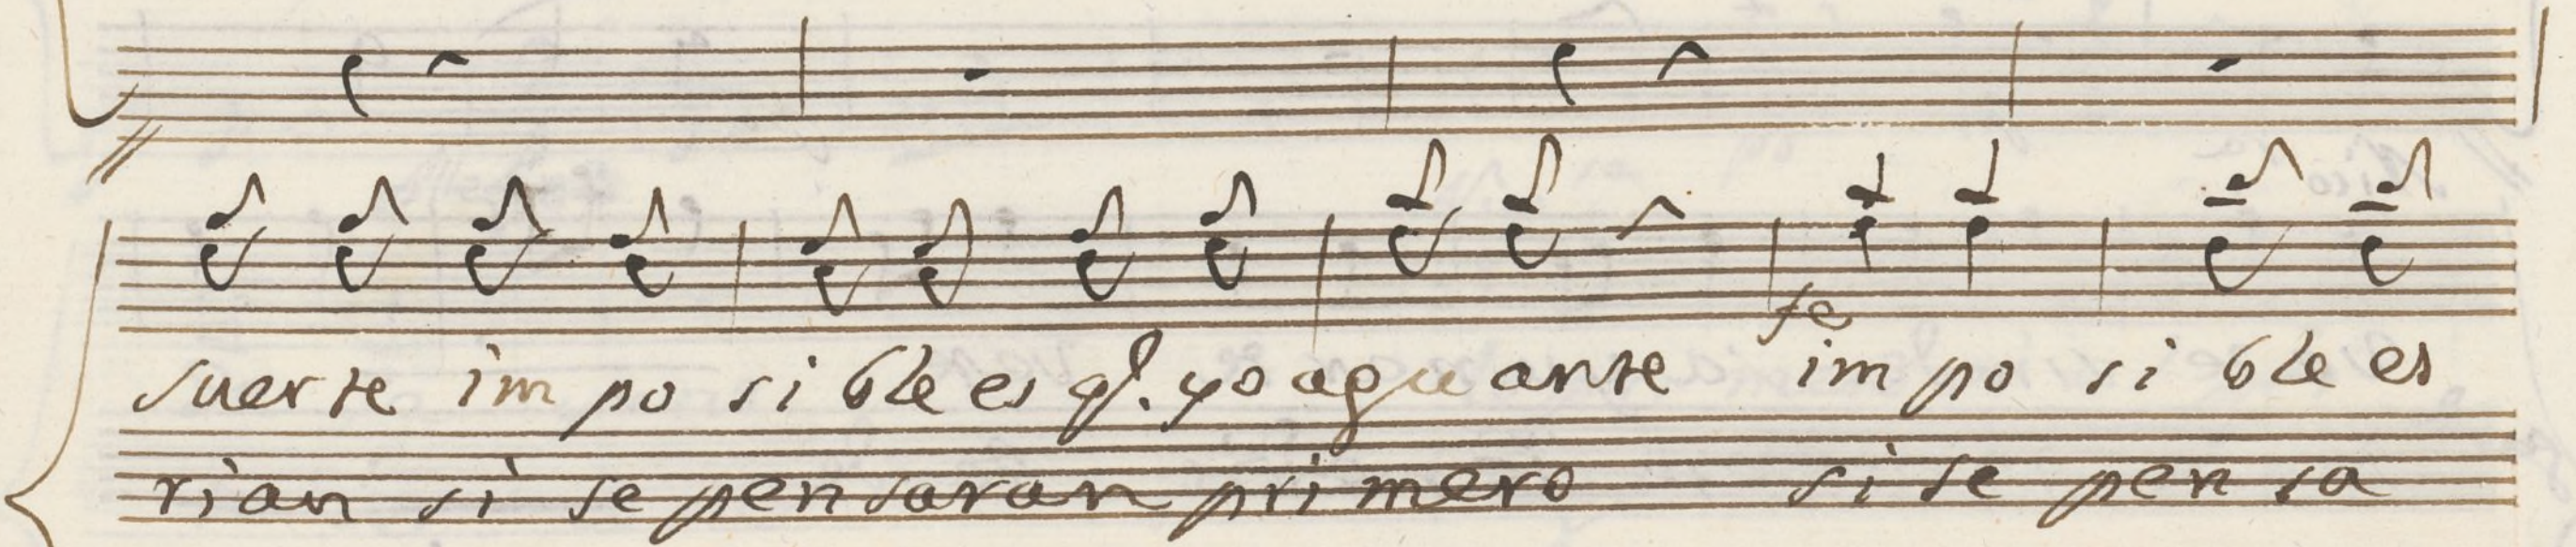 fe
suerte im po si ble es q.e yo aguante im po si ble es
rian si se pensaran primero si se pen sa